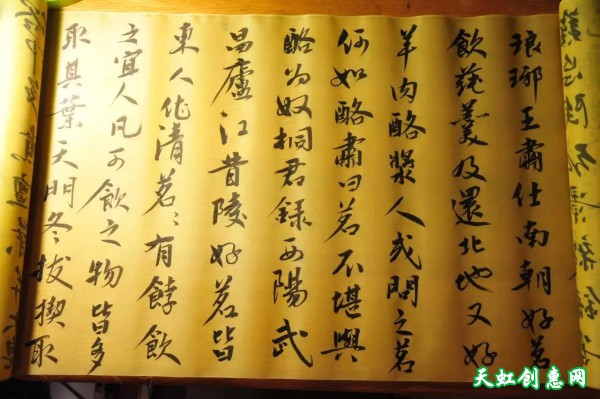 琅瑯王肅仕南朝好茗
飲蓴羹及還北地又好
羊肉酪漿人或問之茗
何如酪肅曰茗不堪與
酪为奴桐君録西陽武
昌廬江昔陵好茗皆
東人作清茗〻有餑飲
之宜人凡可飲之物皆多
取其葉天明冬拔揳取
天虹创惠网